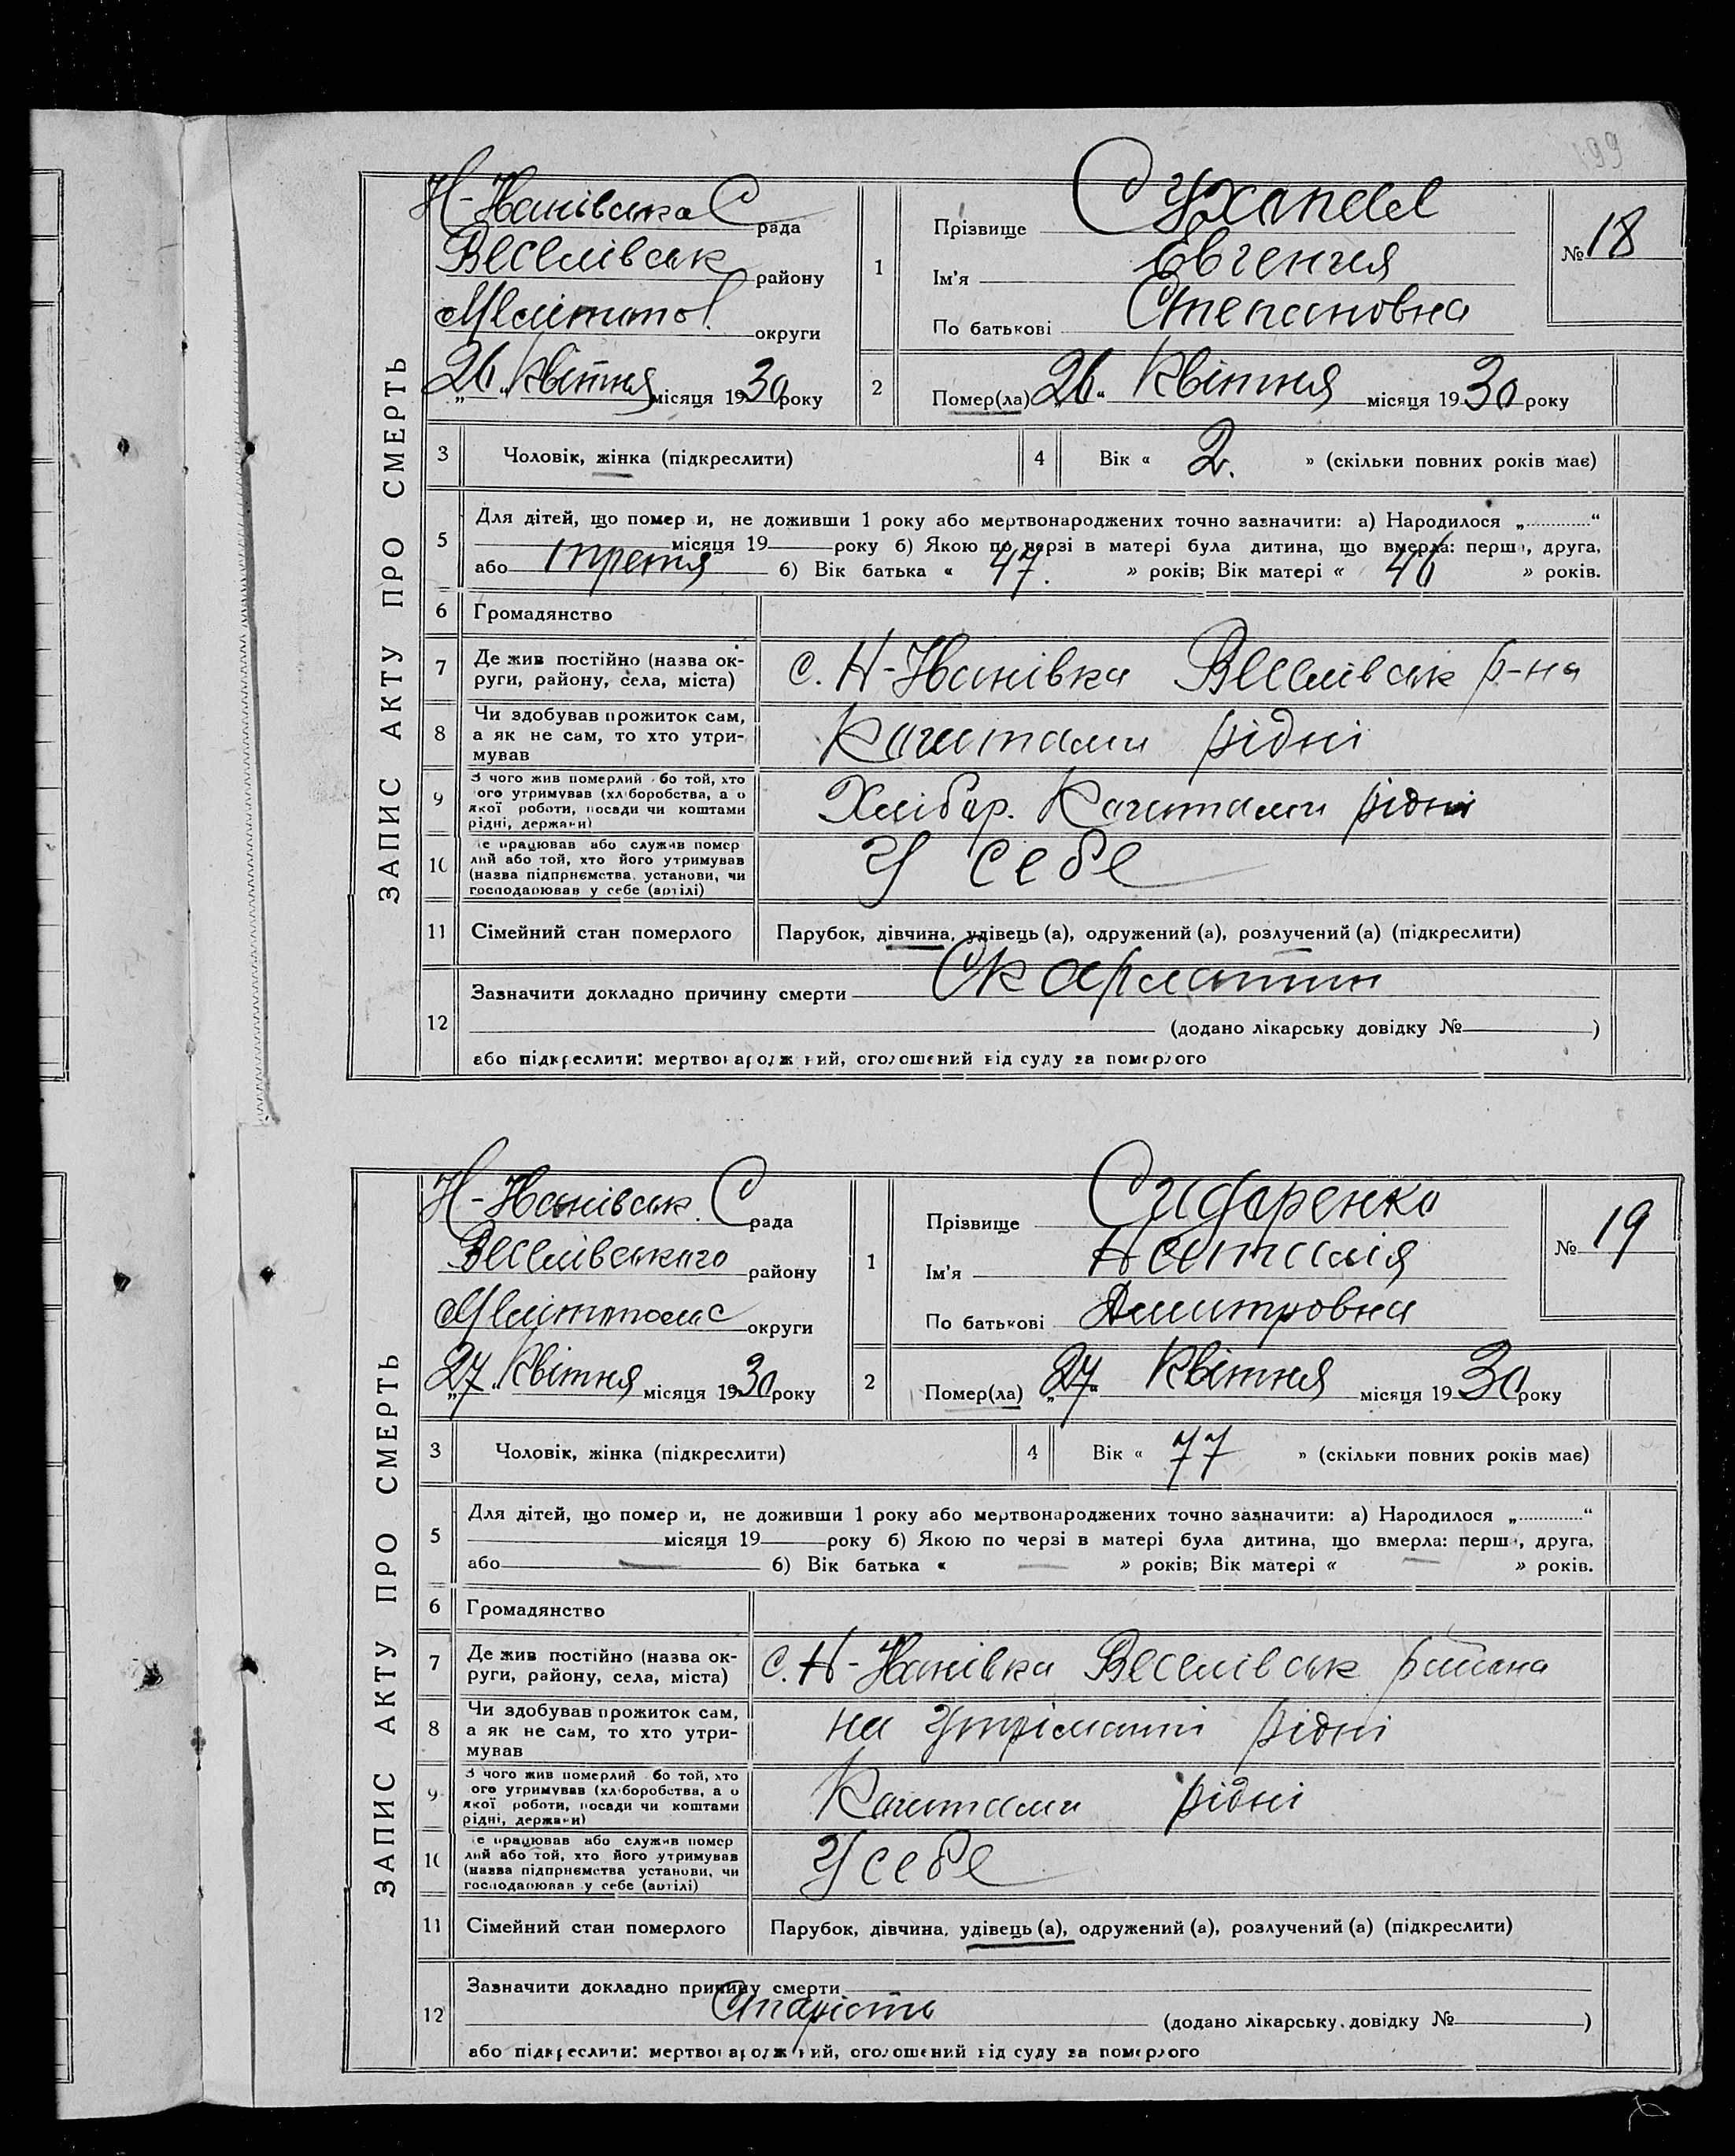 199
ЗАПИС АКТУ ПРО СМЕРТЬ
Н-Іванівська С рада
Веселівськ району
Мелітопол. округи
„26“ Квітня місяця 1930 року
1
Прізвище Сухапел
Ім'я Евгения
По батькові Степановна
№ 18
2
Помер(ла) „26“ Квітня місяця 1930 року
3 Чоловік, жінка (підкреслити)
4 Вік « 2. » (скільки повних років має)
5 Для дітей, що померли, не доживши 1 року або мертвонароджених точно зазначити: а) Народилося „ “
місяця 19 року б) Якою по черзі в матері була дитина, що вмерла: перша, друга,
або третя б) Вік батька « 47. » років; Вік матері « 46 » років.
6 Громадянство
7 Де жив постійно (назва округи, району, села, міста) с. Н-Іванівка Веселівськ р-на
8 Чи здобував прожиток сам, а як не сам, то хто утримував Коштами рідні
9 З чого жив померлий або той, хто його утримував (хліборобства, або якої роботи, посади чи коштами рідні, держави) Хлібор. Коштами рідні
10 Де працював або служив померлий або той, хто його утримував (назва підприємства, установи, чи господарював у себе (артілі) У себе
11 Сімейний стан померлого Парубок, дівчина, удівець (а), одружений (а), розлучений (а) (підкреслити)
12 Зазначити докладно причину смерти Скарлатин
(додано лікарську довідку № )
або підкреслити: мертвонароджений, оголошений від суду за померлого
ЗАПИС АКТУ ПРО СМЕРТЬ
Н-Іванівськ. С рада
Веселівського району
Меліттполс округи
„27“ Квітня місяця 1930 року
1
Прізвище Сидоренко
Ім'я Наталія
По батькові Дмитровна
№ 19
2
Помер(ла) „27“ Квітня місяця 1930 року
3 Чоловік, жінка (підкреслити)
4 Вік « 77 » (скільки повних років має)
5 Для дітей, що померли, не доживши 1 року або мертвонароджених точно зазначити: а) Народилося „ “
місяця 19 року б) Якою по черзі в матері була дитина, що вмерла: перша, друга,
або — б) Вік батька « — » років; Вік матері « — » років.
6 Громадянство
7 Де жив постійно (назва округи, району, села, міста) с. Н-Іванівка Веселівськ района
8 Чи здобував прожиток сам, а як не сам, то хто утримував на утріманні рідні
9 З чого жив померлий або той, хто його утримував (хліборобства, або якої роботи, посади чи коштами рідні, держави) Коштами рідні
10 Де працював або служив померлий або той, хто його утримував (назва підприємства установи, чи господарював у себе (артілі) У себе
11 Сімейний стан померлого Парубок, дівчина, удівець (а), одружений (а), розлучений (а) (підкреслити)
12 Зазначити докладно причину смерти
Старість (додано лікарську довідку № )
або підкреслити: мертвонароджений, оголошений від суду за померлого